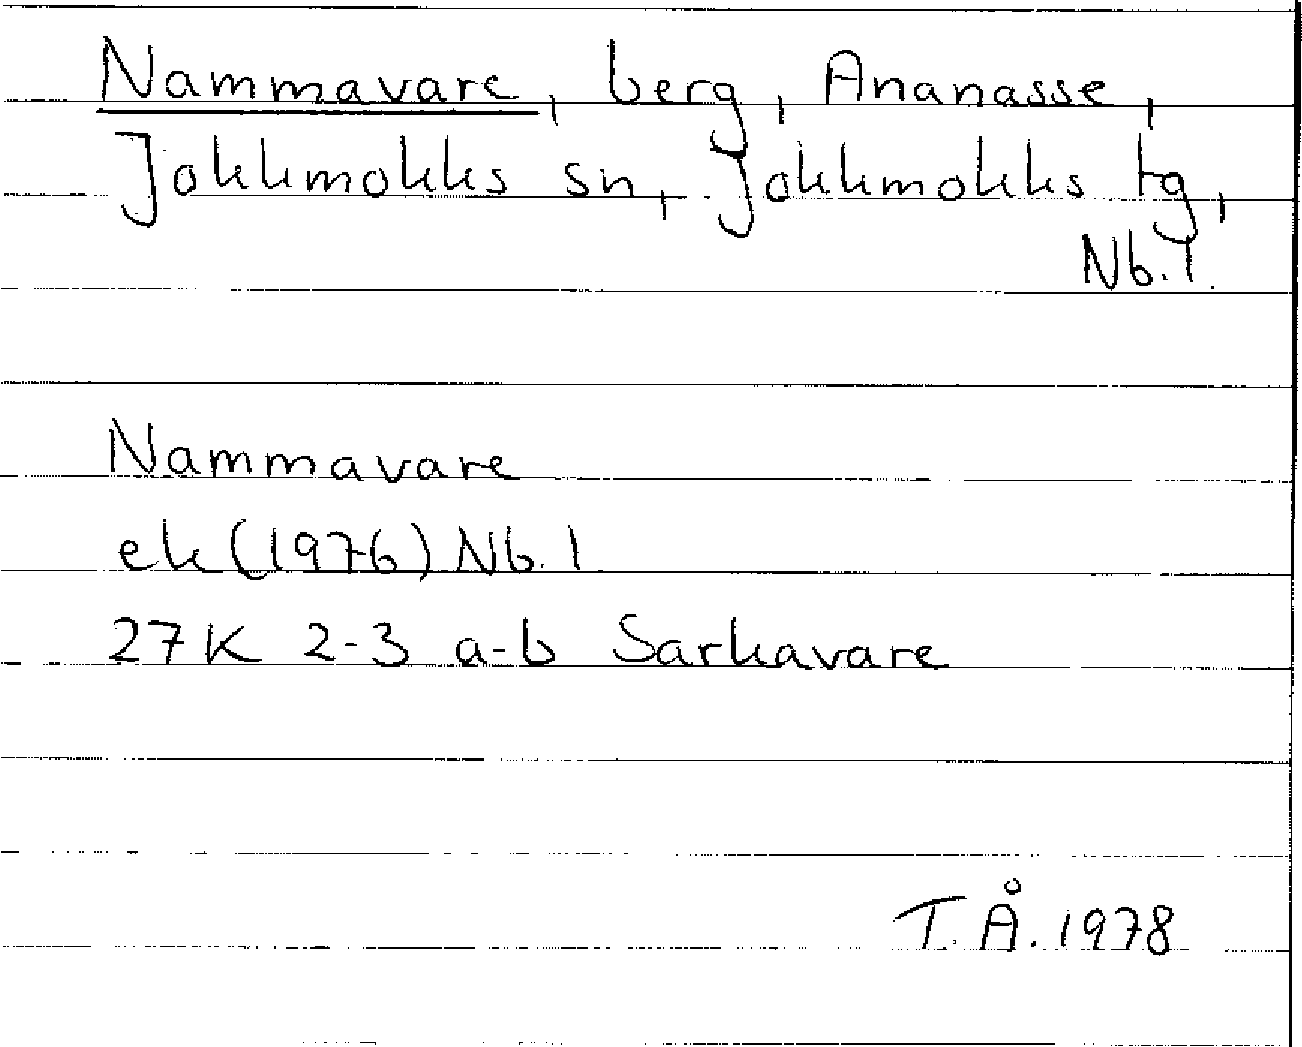 Nammavare, berg, Ananasse,
Jokkmokks sn, Jokkmokks tg,
Nb. l.
Nammavare
ek (1976) Nb. l
27K 2-3 a-b Sarkavare
T. Å. 1978